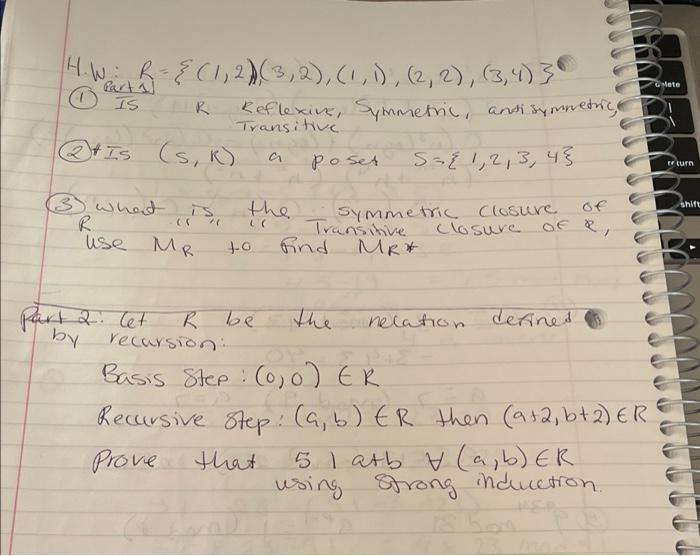 H.W: R = { (1,2)(3,2), (1,1), (2,2), (3,4) }
Part 1
① Is R Reflexive, Symmetric, antisymmetric,
Transitive
② Is (S, R) a poset S = { 1, 2, 3, 4 }
③ what is the symmetric closure of
R " " " Transitive closure of R,
use MR to find MR*
Part 2: let R be the relation defined
by recursion:
Basis Step: (0,0) ∈ R
Recursive Step: (a,b) ∈ R then (a+2, b+2) ∈ R
Prove that 5 | a+b ∀ (a,b) ∈ R
using strong induction.
urn
shift